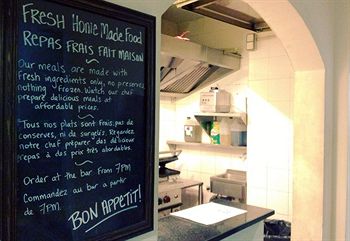 FRESH Home Made Food
REPAS FRAIS FAIT MAISON
Our meals are made with
fresh ingredients only, no preserves
nothing frozen. Watch our chef
prepare delicious meals at
affordable prices.
Tous nos plats sont frais, pas de
conserves, ni de surgelés. Regardez
notre chef préparer des délicieux
repas à des prix très abordables.
Order at the bar From 7PM
Commandez au bar a partir
de 7PM.
BON APPETIT!